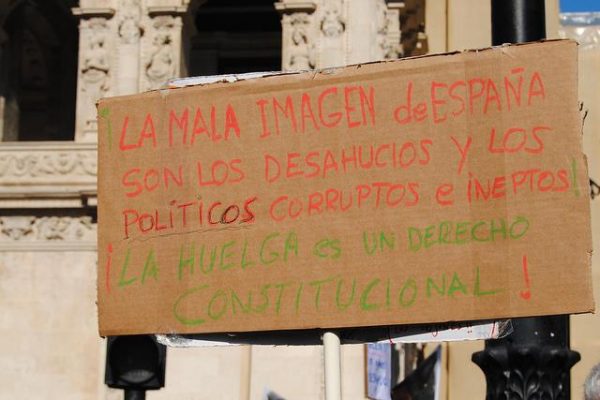 ¡LA MALA IMAGEN de ESPAÑA
SON LOS DESAHUCIOS Y LOS
POLÍTICOS CORRUPTOS e iNEPTOS!
¡LA HUELGA es UN DERECHO
CONSTITUCIONAL!